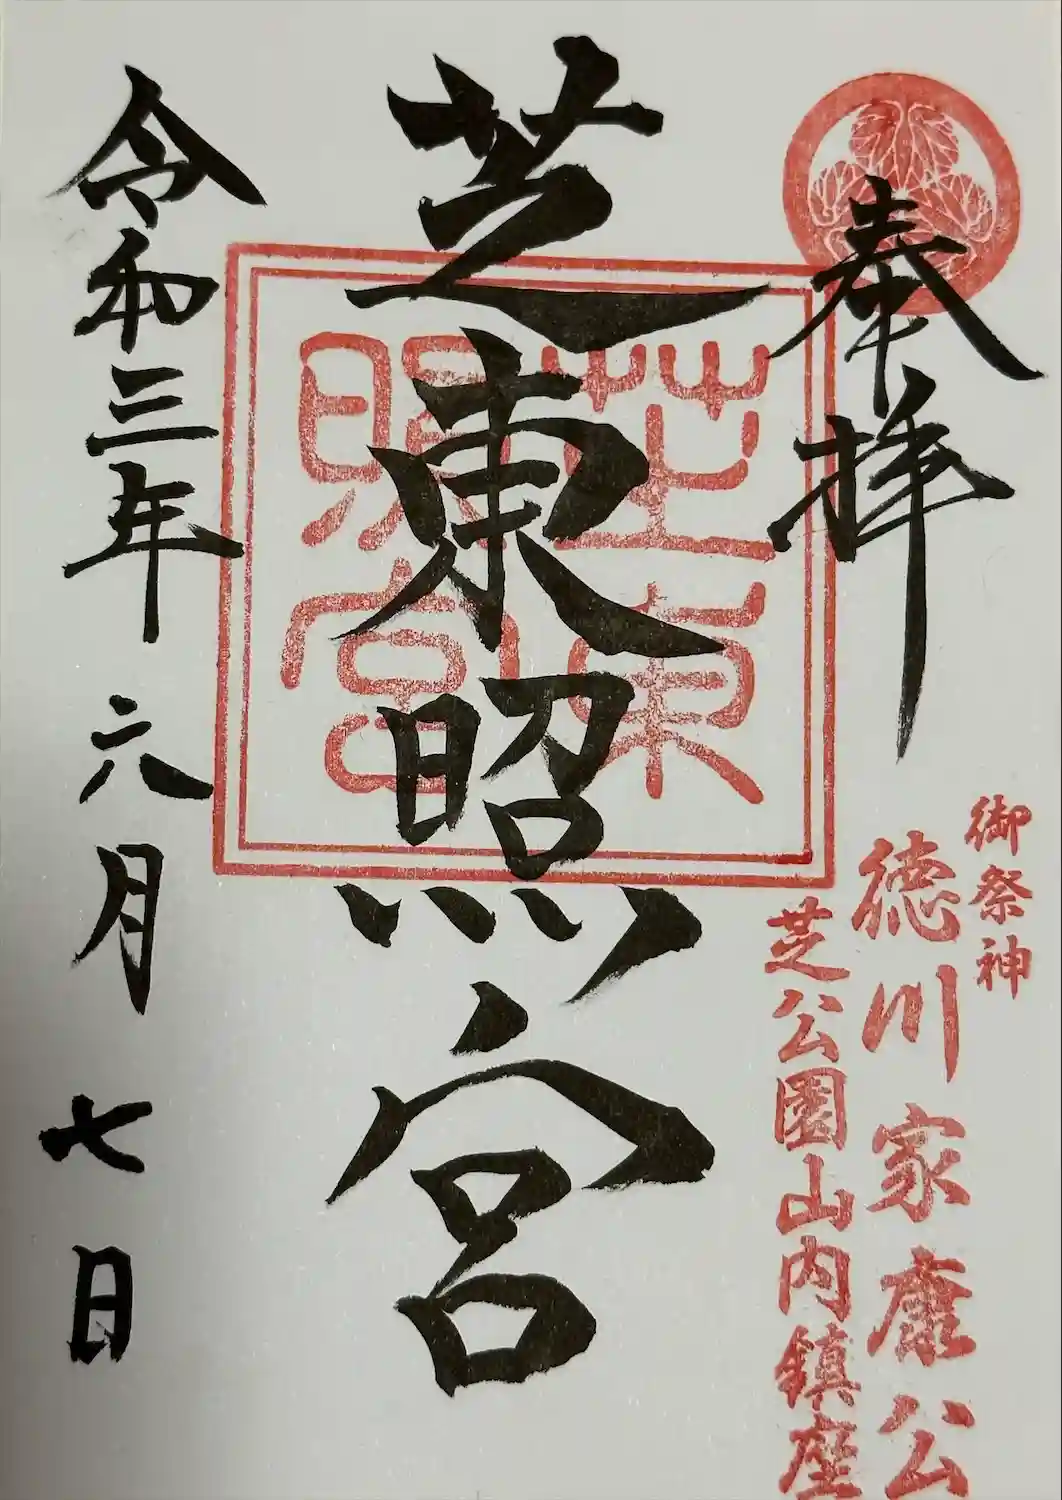 奉拝
御祭神
徳川家康公
芝公園山内鎮座
芝東照宮
芝東
照宮
令和三年六月七日